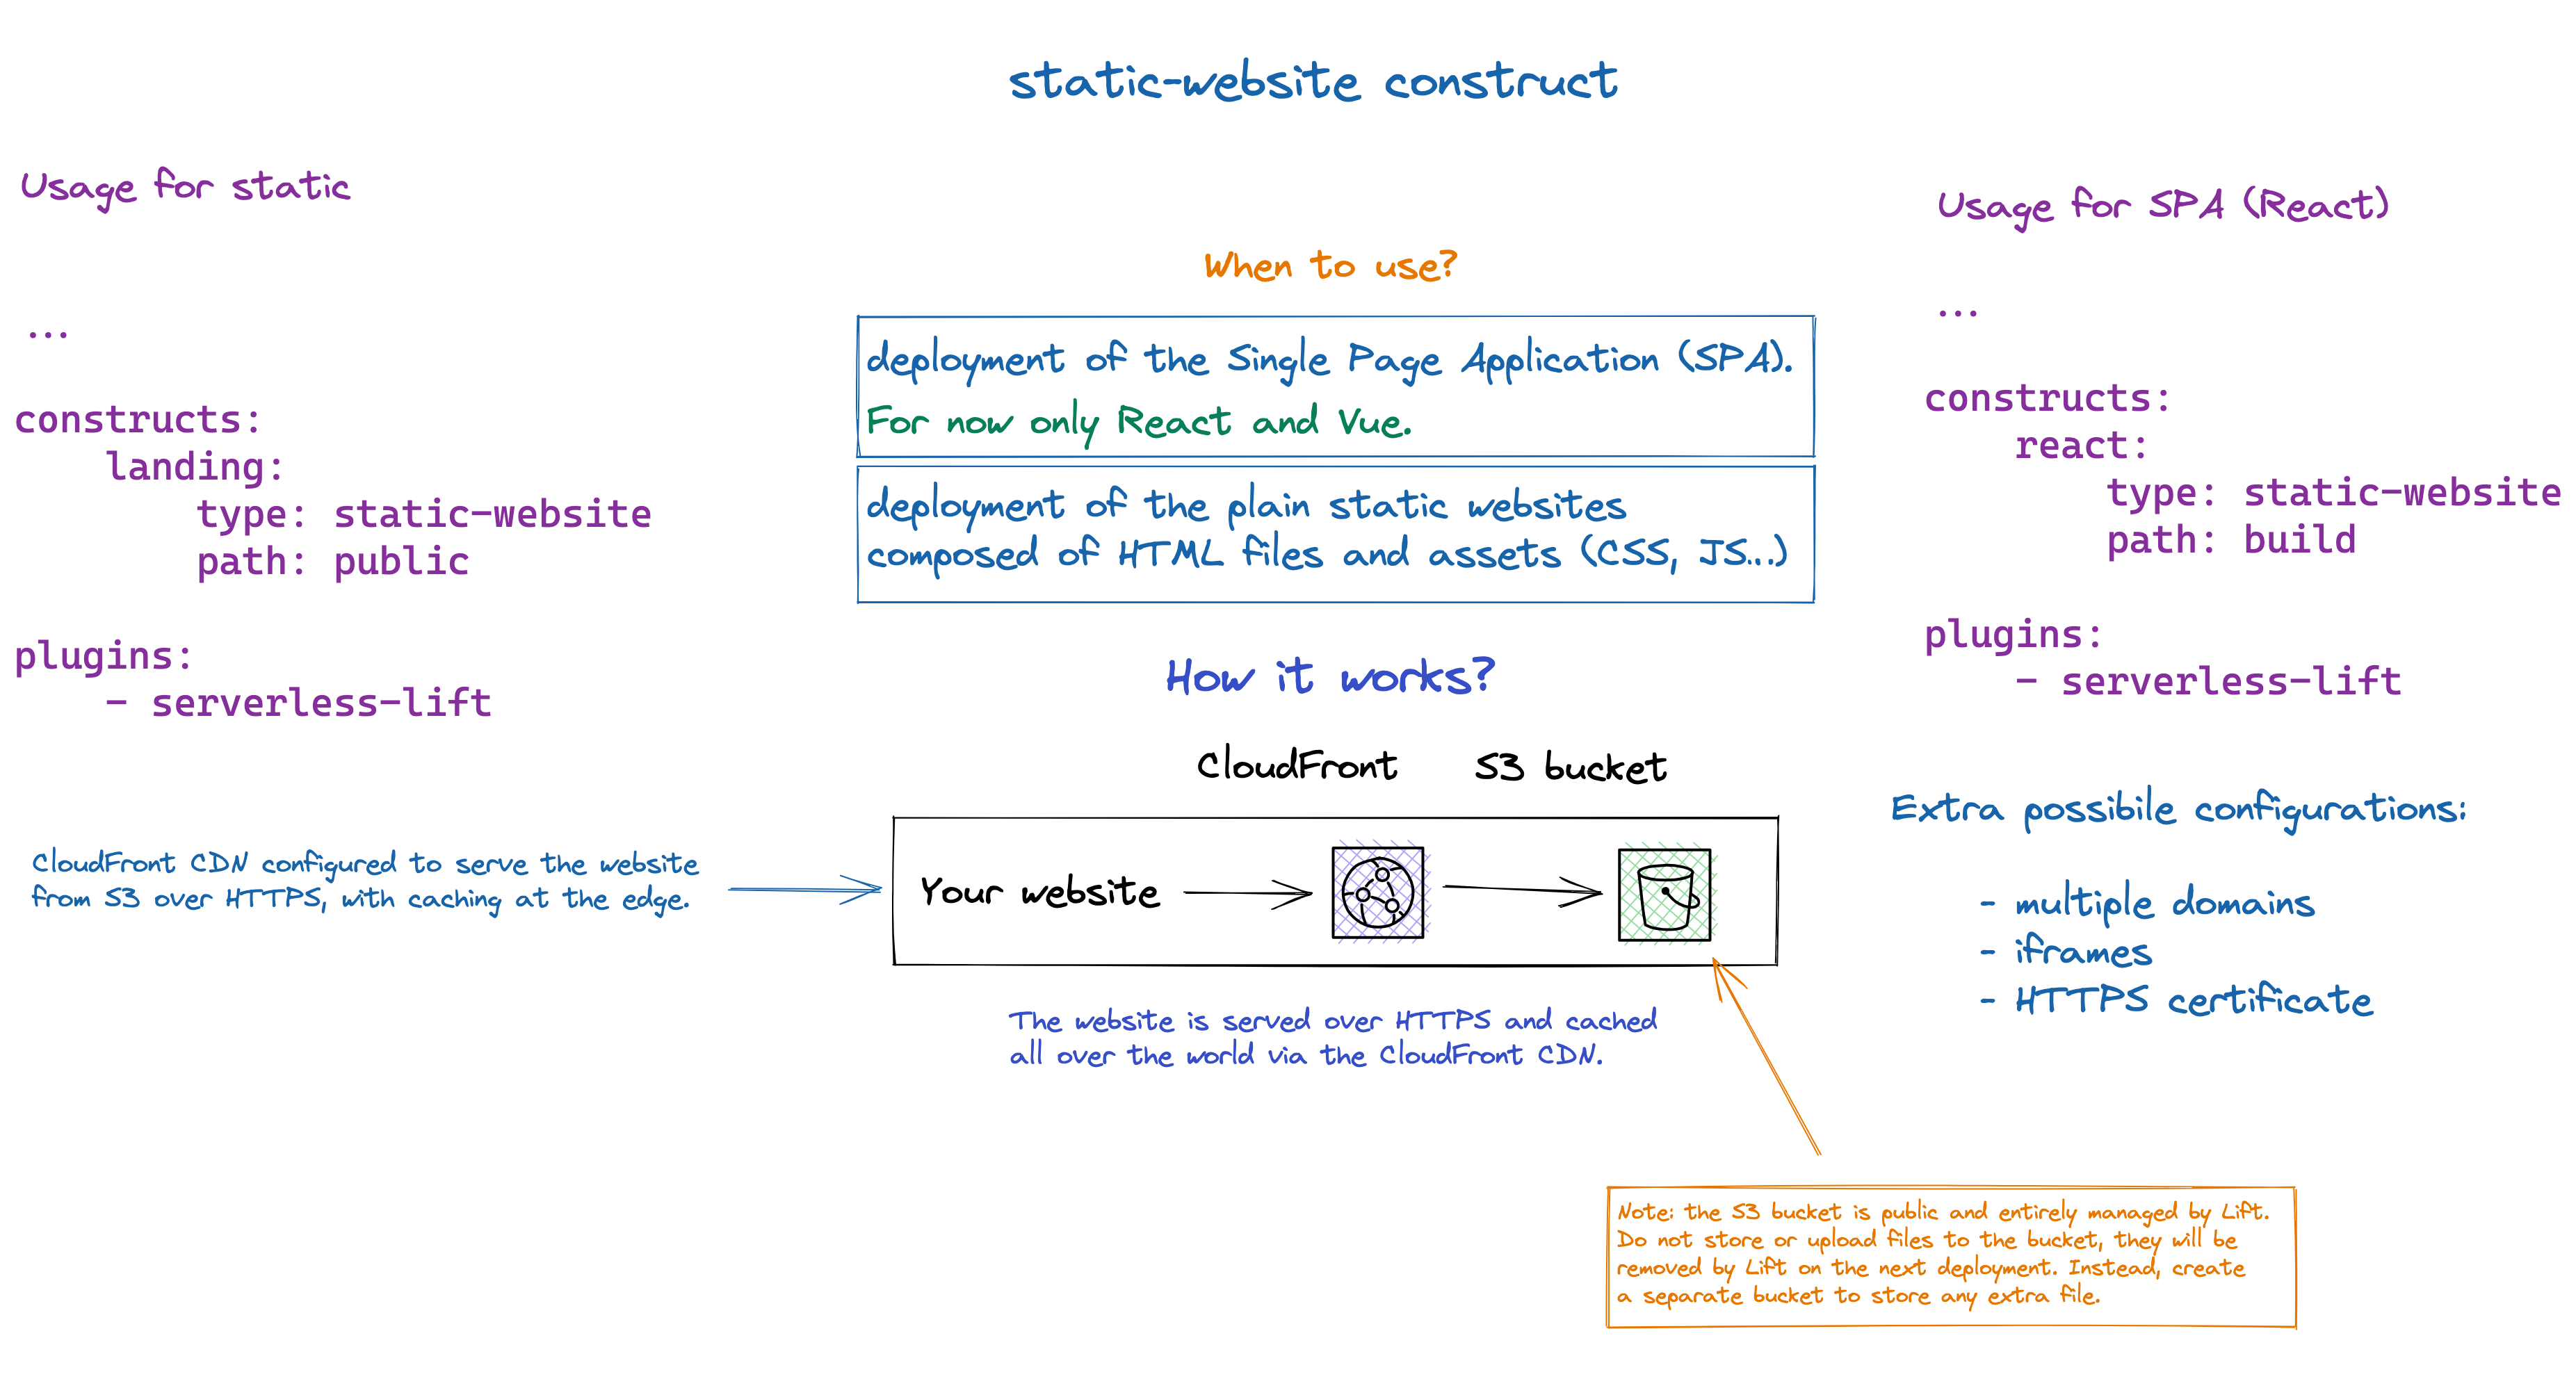 static-website construct
Usage for static
...
constructs:
    landing:
        type: static-website
        path: public
plugins:
    - serverless-lift
When to use?
deployment of the Single Page Application (SPA).
For now only React and Vue.
deployment of the plain static websites
composed of HTML files and assets (CSS, JS...)
Usage for SPA (React)
...
constructs:
    react:
        type: static-website
        path: build
plugins:
    - serverless-lift
How it works?
CloudFront
S3 bucket
CloudFront CDN configured to serve the website
from S3 over HTTPS, with caching at the edge.
Your website
The website is served over HTTPS and cached
all over the world via the CloudFront CDN.
Extra possibile configurations:
- multiple domains
- iframes
- HTTPS certificate
Note: the S3 bucket is public and entirely managed by Lift.
Do not store or upload files to the bucket, they will be
removed by Lift on the next deployment. Instead, create
a separate bucket to store any extra file.